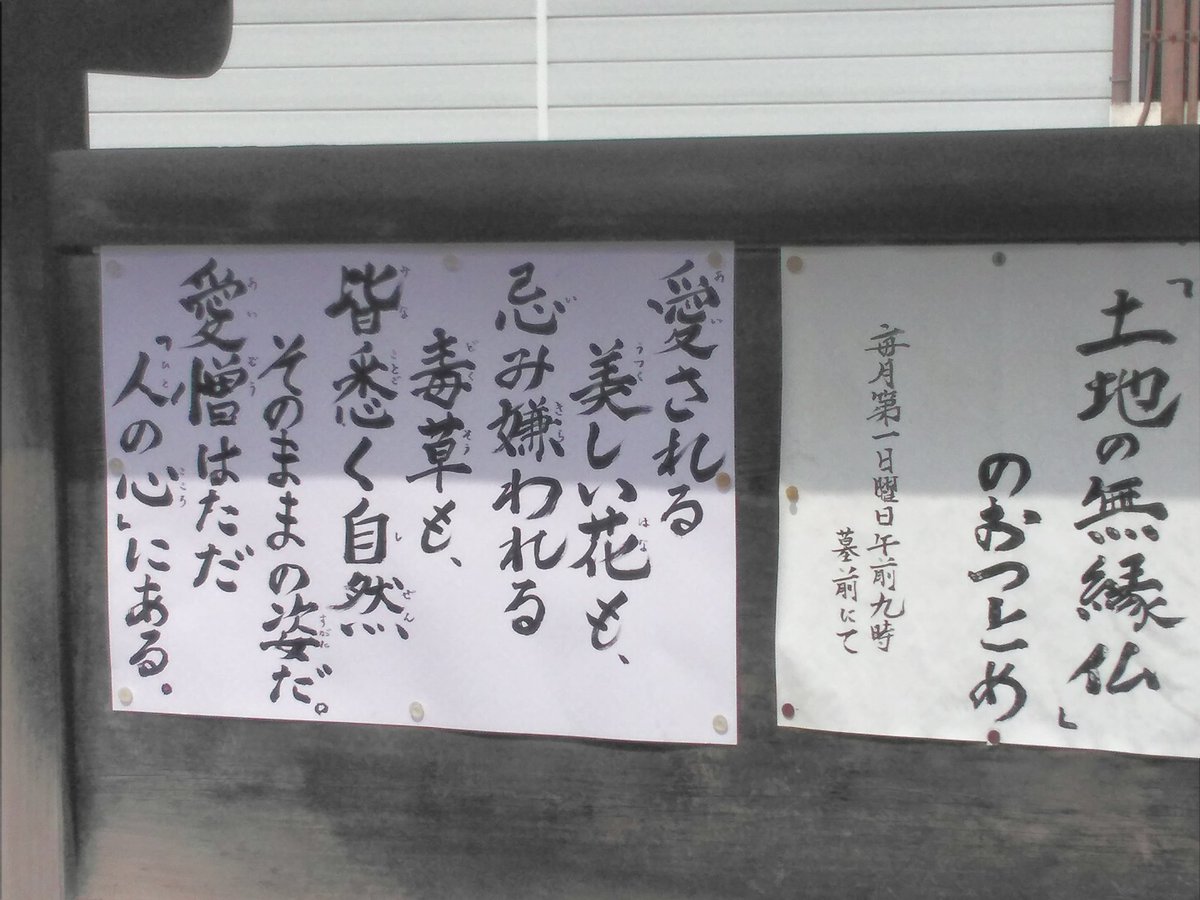 「土地の無縁仏」
のおつとめ
毎月第一日曜日午前九時
墓前にて
愛される
美しい花も、
忌み嫌われる
毒草も、
皆悉く自然
そのままの姿だ。
愛憎はただ
「人の心」にある.